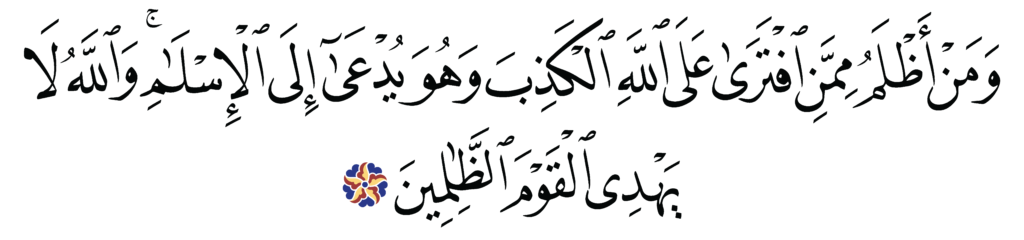 وَمَنْ أَظْلَمُ مِمَّنِ ٱفْتَرَىٰ عَلَى ٱللَّهِ ٱلْكَذِبَ وَهُوَ يُدْعَىٰٓ إِلَى ٱلْإِسْلَـٰمِ ۚ وَٱللَّهُ لَا
يَهْدِى ٱلْقَوْمَ ٱلظَّـٰلِمِينَ